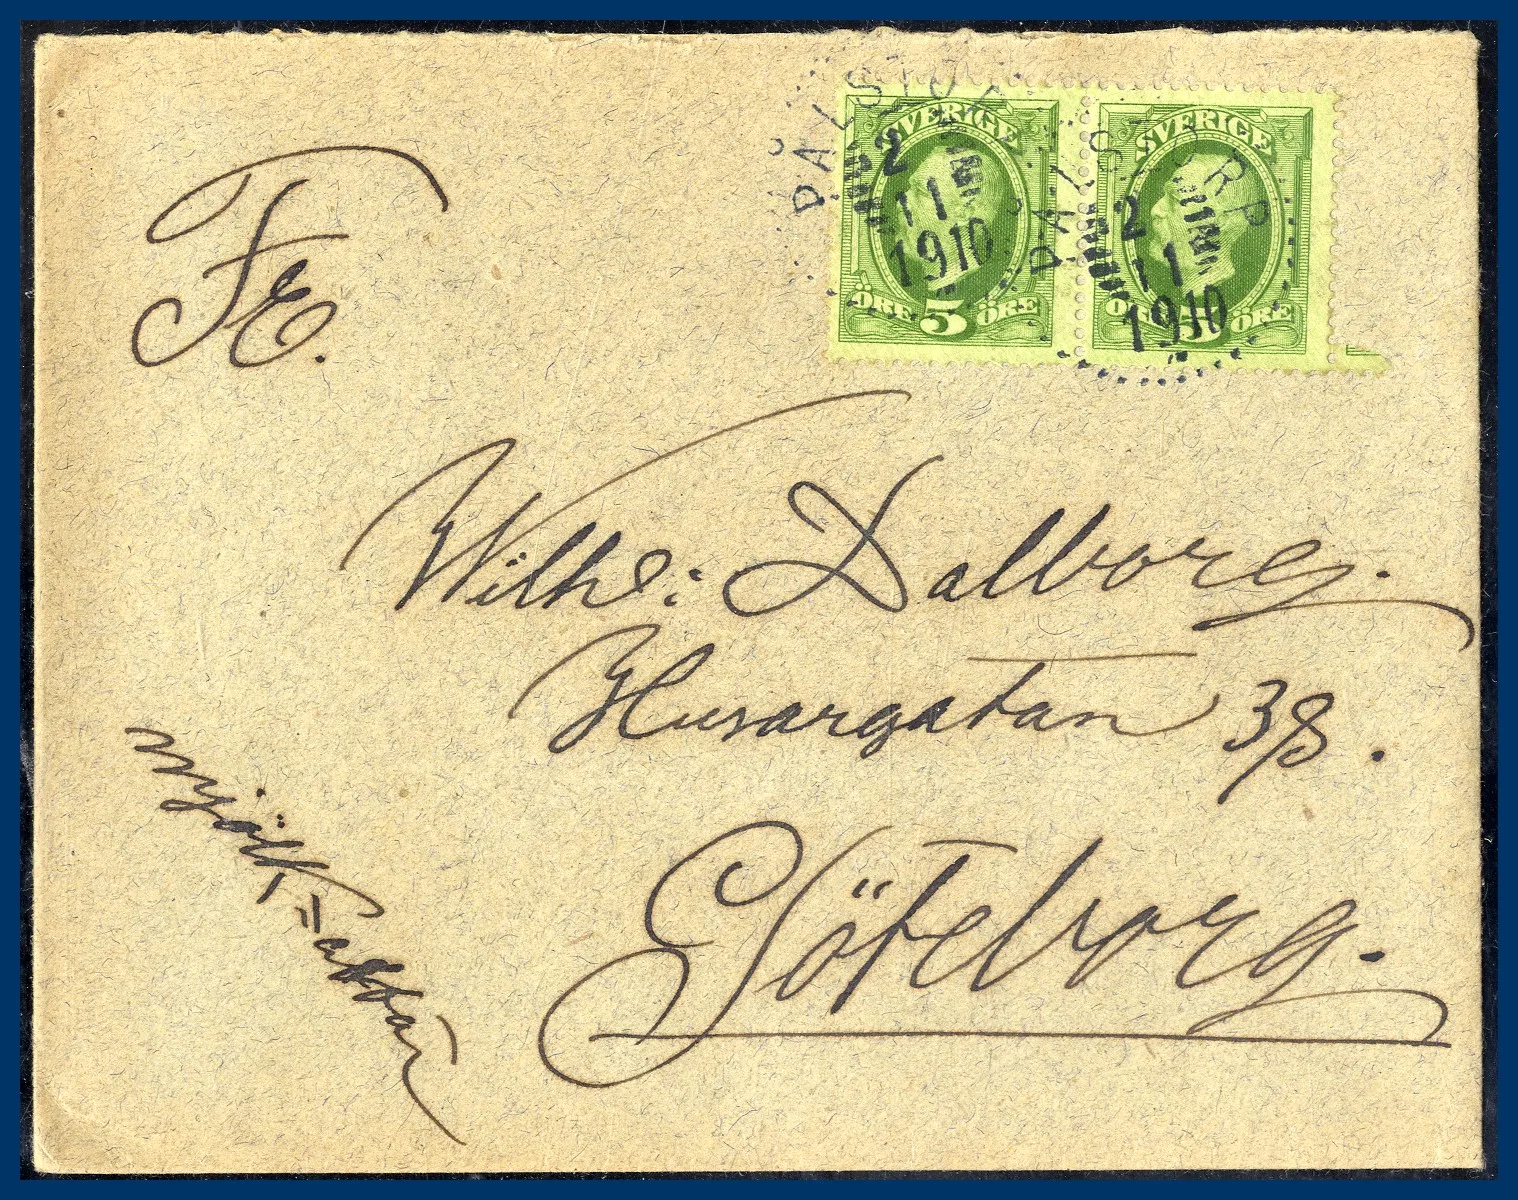 PÅLSTORP
2
11
1910
SVERIGE
ÖRE 5 ÖRE
PÅLSTORP
2
11
1910
SVERIGE
ÖRE 5 ÖRE
Fr.
Wilh: Dalborg.
Husargatan 38.
Göteborg.